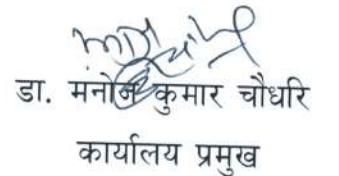 डा. मनोज कुमार चौधरि
कार्यालय प्रमुख